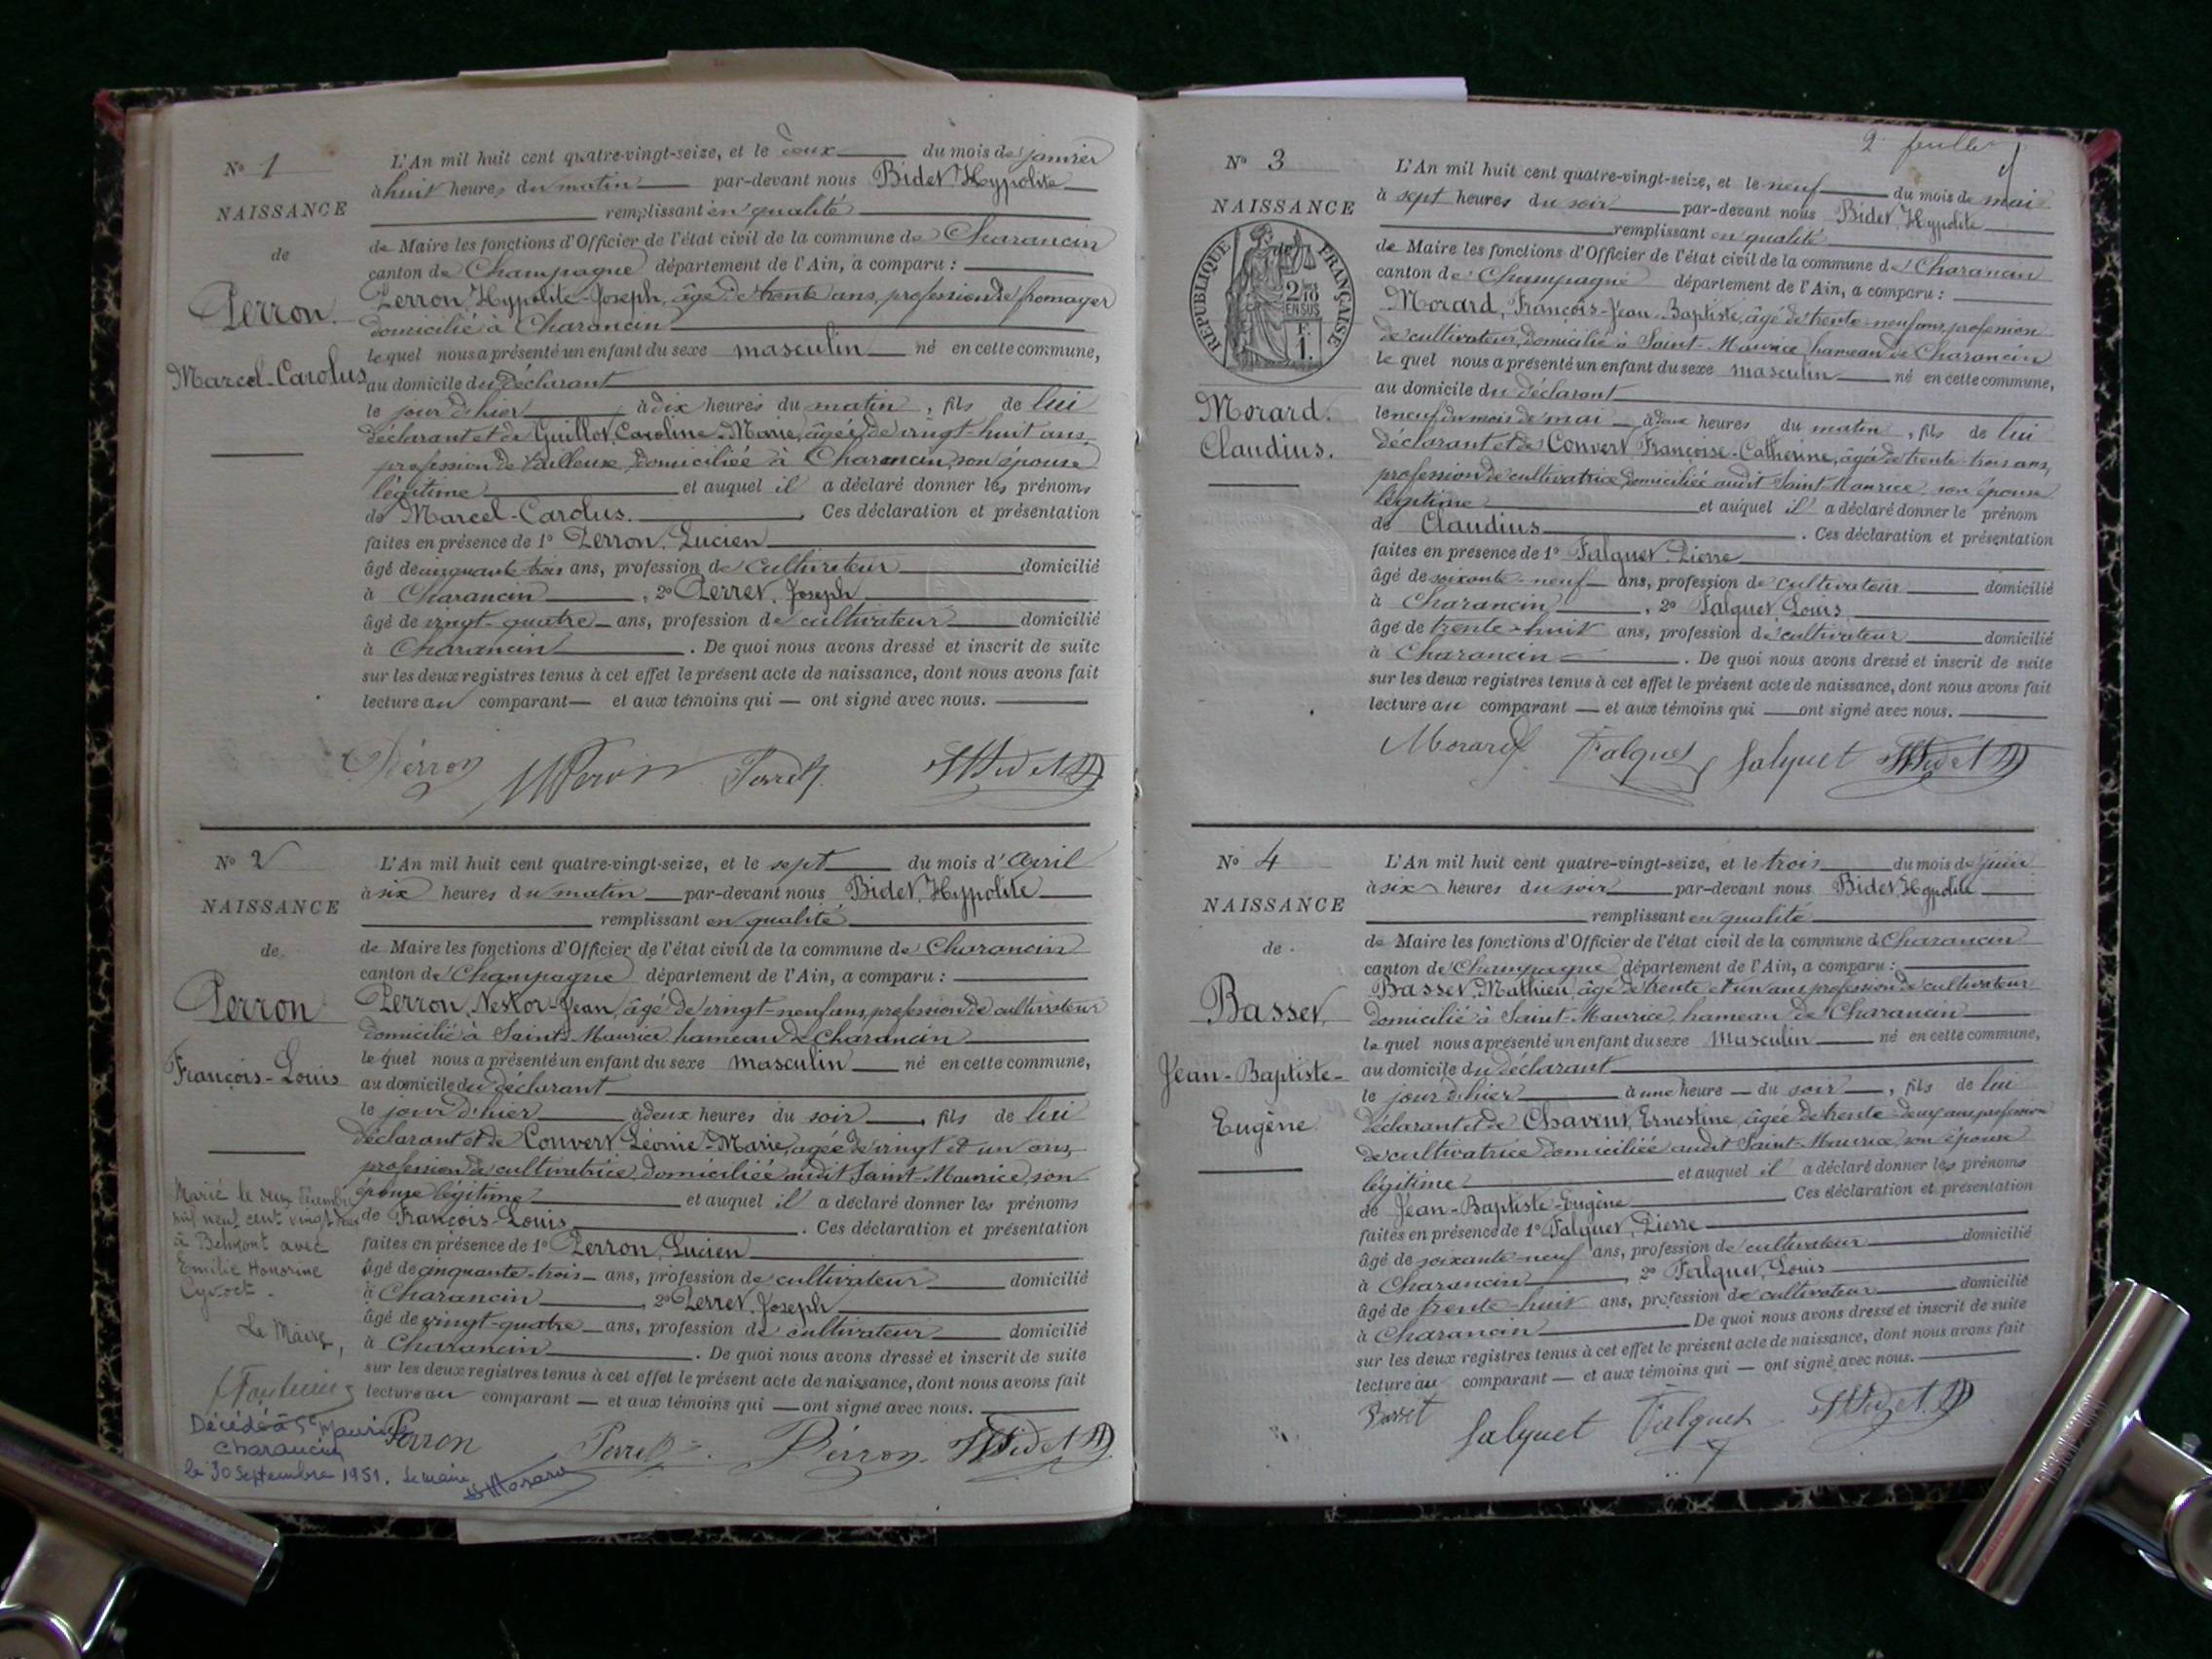 N° 1
NAISSANCE
de
Perron
Marcel-Carolus
L'An mil huit cent quatre-vingt-seize, et le deux du mois de janvier
à huit heures du matin par-devant nous Bidet, Hypolite
remplissant en qualité
de Maire les fonctions d'Officier de l'état civil de la commune de Charancin
canton de Champagne département de l'Ain, a comparu :
Perron, Hypolite-Joseph, âgé de trente ans, profession de fromager
domicilié à Charancin
lequel nous a présenté un enfant du sexe masculin né en cette commune,
au domicile du déclarant
le jour d'hier à dix heures du matin, fils de lui
déclarant et de Guillot, Caroline-Marie, âgée de vingt-huit ans,
profession de tailleuse, domiciliée à Charancin, son épouse
légitime et auquel il a déclaré donner les prénoms
de Marcel-Carolus. Ces déclaration et présentation
faites en présence de 1° Perron, Lucien
âgé de cinquante-trois ans, profession de cultivateur domicilié
à Charancin, 2° Perret, Joseph
âgé de vingt-quatre ans, profession de cultivateur domicilié
à Charancin. De quoi nous avons dressé et inscrit de suite
sur les deux registres tenus à cet effet le présent acte de naissance, dont nous avons fait
lecture au comparant et aux témoins qui ont signé avec nous.
Perron Perret HBidet
N° 2
NAISSANCE
de
Perron
François-Louis
L'An mil huit cent quatre-vingt-seize, et le sept du mois d'Avril
à six heures du matin par-devant nous Bidet, Hyppolite
remplissant en qualité
de Maire les fonctions d'Officier de l'état civil de la commune de Charancin
canton de Champagne département de l'Ain, a comparu :
Perron, Nestor-Jean, âgé de vingt-neuf ans, profession de cultivateur
domicilié à Saint-Maurice, hameau de Charancin
lequel nous a présenté un enfant du sexe masculin né en cette commune,
au domicile du déclarant
le jour d'hier à deux heures du soir, fils de lui
déclarant et de Convert, Léonie-Marie, agée de vingt et un ans,
profession de cultivatrice, domiciliée audit Saint-Maurice, son
épouse légitime et auquel il a déclaré donner les prénoms
de François-Louis. Ces déclaration et présentation
faites en présence de 1° Perron, Lucien
âgé de cinquante-trois ans, profession de cultivateur domicilié
à Charancin, 2° Perret, Joseph
âgé de vingt-quatre ans, profession de cultivateur domicilié
à Charancin. De quoi nous avons dressé et inscrit de suite
sur les deux registres tenus à cet effet le présent acte de naissance, dont nous avons fait
lecture au comparant et aux témoins qui ont signé avec nous.
Marié le deux Décembre
mil neuf cent vingt deux
à Belmont avec
Emilie Honorine
Cyvoct.
Le Maire,
Décédé à St Maurice
Charancin
le 30 Septembre 1951. Le maire
Morard
Perron Perret Perron HBidet
2e feuillet
N° 3
NAISSANCE
de
RÉPUBLIQUE FRANÇAISE
2/10
EN SUS
F.
1.
Morard.
Claudius.
L'An mil huit cent quatre-vingt-seize, et le neuf du mois de mai
à sept heures du soir par-devant nous Bidet, Hypolite
remplissant en qualité
de Maire les fonctions d'Officier de l'état civil de la commune de Charancin
canton de Champagne département de l'Ain, a comparu :
Morard, François-Jean-Baptiste, âgé de trente-neuf ans, profession
de cultivateur, domicilié à Saint-Maurice, hameau de Charancin
lequel nous a présenté un enfant du sexe masculin né en cette commune,
au domicile du déclarant
le neuf du mois de mai à deux heures du matin, fils de lui
déclarant et de Convert, Françoise-Catherine, âgée de trente-trois ans,
profession de cultivatrice, domiciliée audit Saint-Maurice, son épouse
légitime et auquel il a déclaré donner le prénom
de Claudius. Ces déclaration et présentation
faites en présence de 1° Falquet, Pierre
âgé de soixante-neuf ans, profession de cultivateur domicilié
à Charancin, 2° Falquet, Louis
âgé de trente-huit ans, profession de cultivateur domicilié
à Charancin. De quoi nous avons dressé et inscrit de suite
sur les deux registres tenus à cet effet le présent acte de naissance, dont nous avons fait
lecture au comparant et aux témoins qui ont signé avec nous.
Morard Falquet Falquet HBidet
N° 4
NAISSANCE
de
Basset,
Jean-Baptiste-
Eugène
L'An mil huit cent quatre-vingt-seize, et le trois du mois de juin
à six heures du soir par-devant nous Bidet, Hypolite
remplissant en qualité
de Maire les fonctions d'Officier de l'état civil de la commune de Charancin
canton de Champagne département de l'Ain, a comparu :
Basset, Mathieu, âgé de trente et un ans, profession de cultivateur
domicilié à Saint-Maurice, hameau de Charancin
lequel nous a présenté un enfant du sexe Masculin né en cette commune,
au domicile du déclarant
le jour d'hier à une heure du soir, fils de lui
déclarant et de Chavent, Ernestine, âgée de trente-deux ans, profession
de cultivatrice domiciliée audit Saint-Maurice, son épouse
légitime et auquel il a déclaré donner les prénoms
de Jean-Baptiste-Eugène Ces déclaration et présentation
faites en présence de 1° Falquet, Pierre
âgé de soixante-neuf ans, profession de cultivateur domicilié
à Charancin, 2° Falquet, Louis
âgé de trente-huit ans, profession de cultivateur domicilié
à Charancin De quoi nous avons dressé et inscrit de suite
sur les deux registres tenus à cet effet le présent acte de naissance, dont nous avons fait
lecture au comparant et aux témoins qui ont signé avec nous.
Basset Falquet Falquet HBidet